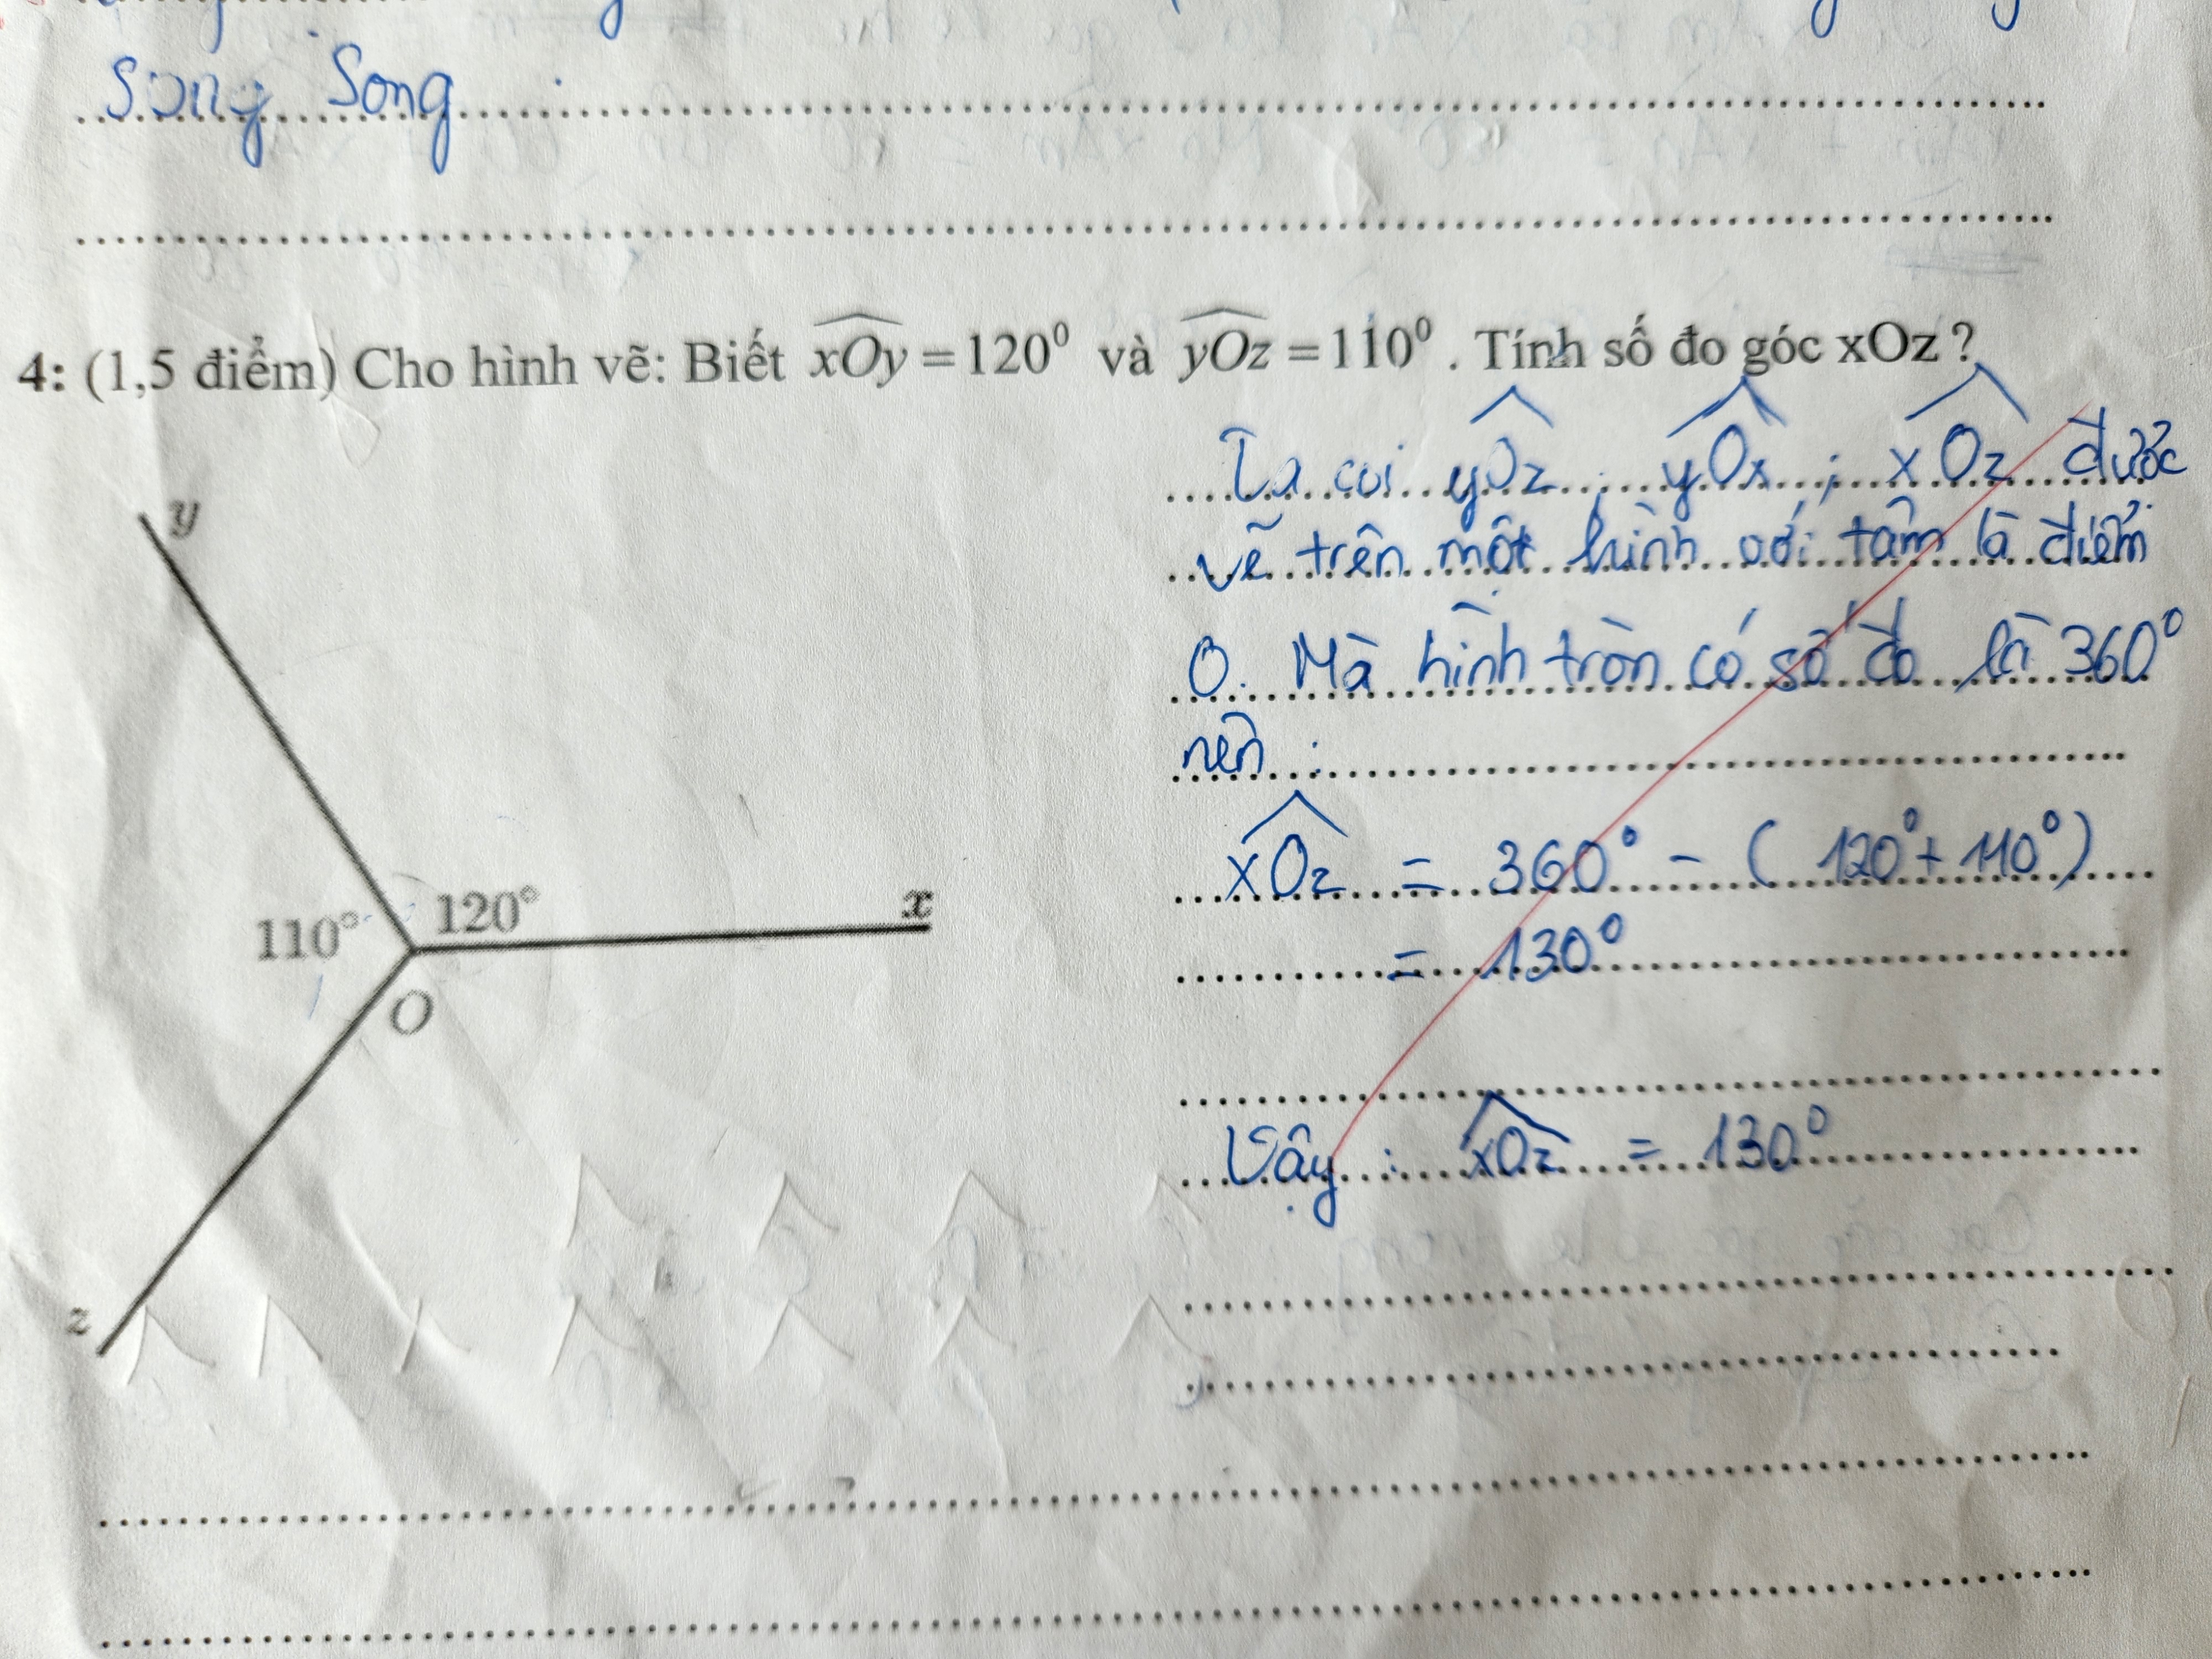 Song Song
4: (1,5 điểm) Cho hình vẽ: Biết xOy = 120⁰ và yOz = 110⁰ . Tính số đo góc xOz ?
Ta coi yOz ; yOx ; xOz được
vẽ trên một hình với tâm là điểm
O. Mà hình tròn có số đo là 360⁰
nên :
xOz = 360⁰ - ( 120⁰ + 110⁰ )
= 130⁰
Vậy : xOz = 130⁰
y
110°
120°
x
O
z